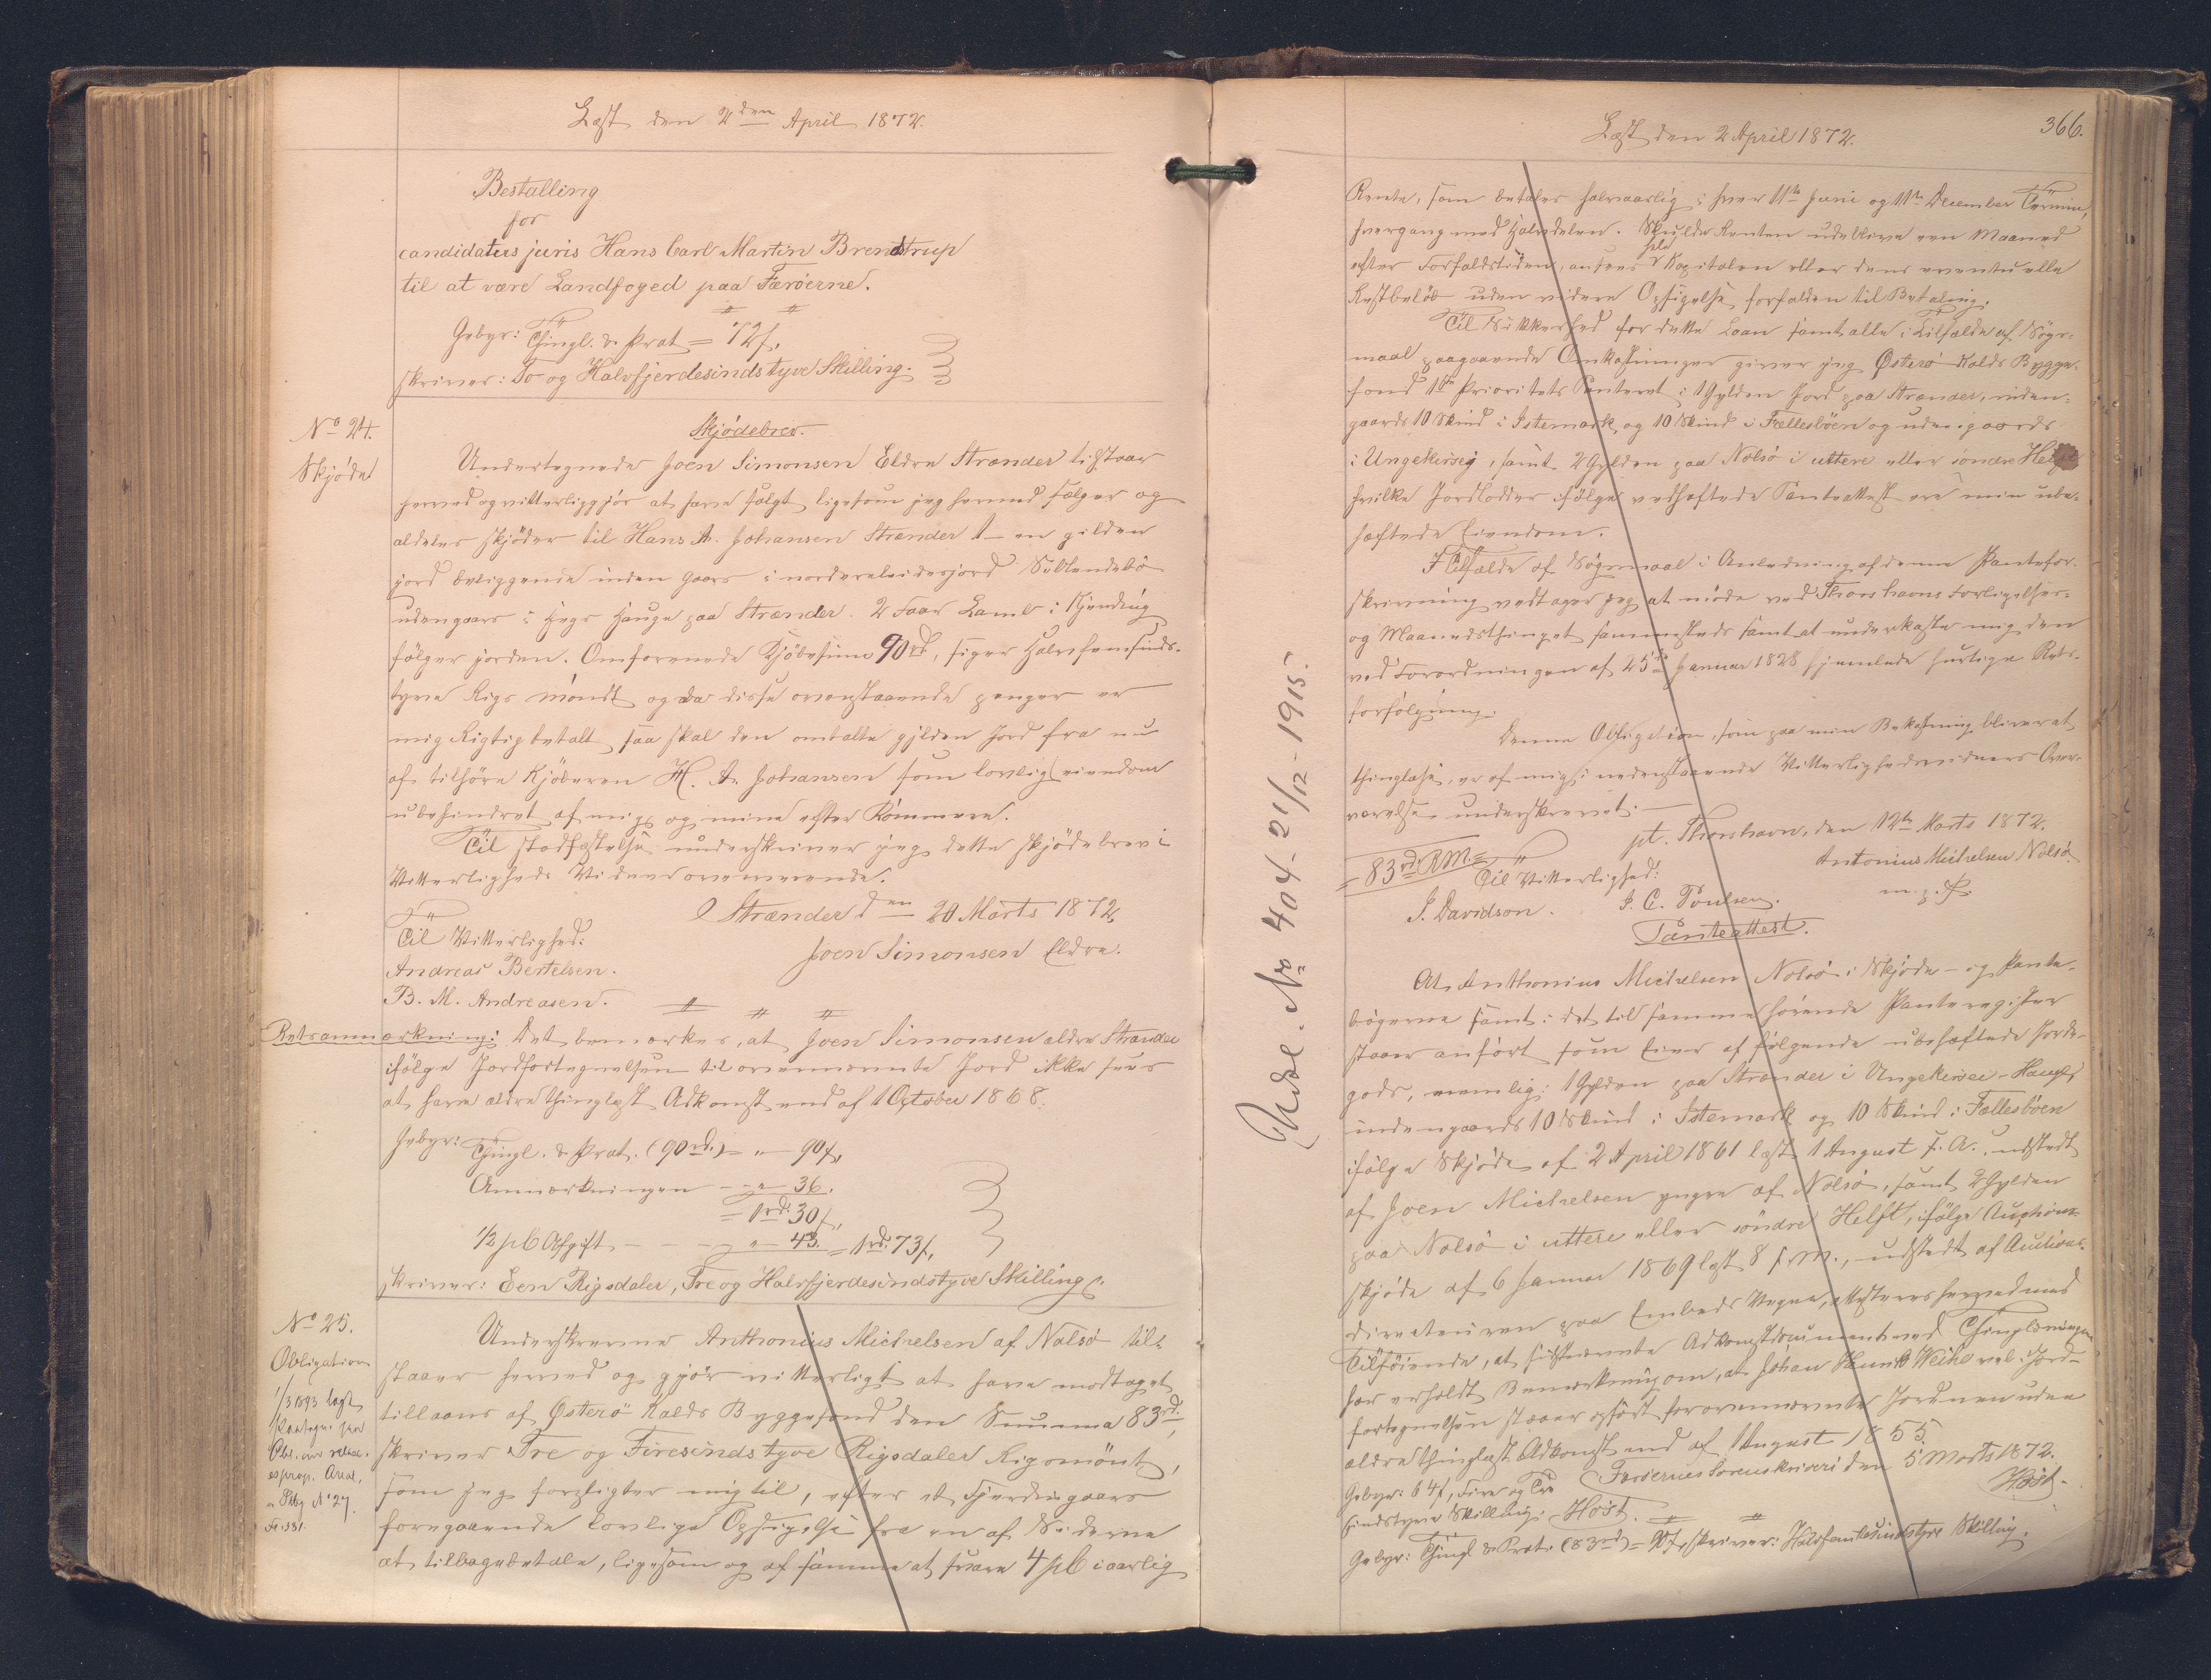 Læst den 2den April 1872.
Bestalling
for
candidatus juris Hans Carl Martin Brendstrup
til at være Landfoged paa Færöerne.
Gebyr: Thingl. & Prot = 72 f,
skriver: To og Halvfjerdesindstyve Skilling.
No 24.
Skjöde
Skjödebrev.
Undertegnede Joen Simonsen Eldre Strænder tilstaar
herved og vitterliggjör at have solgt ligesom jeg herved sælger og
aldeles skjöder til Hans A. Johansen Strænder 1 - en gilden
jord beliggende inden gaars i
udengaars i Hauge paa Strænder. 2 Faar Lamb i
fölger jorden. Omforenede Kjöbesum 90rd, siger Halvfemsinds-
tyve Rigs möndt og da disse ovenstaaende penger er
mig Rigtig betalt, saa skal den omtalte gylden Jord fra nu
af tilhöre Kjöberen H. A. Johansen som lovlig eiendom
ubehindret af mig og mine efter Kommere.
Til stadfæstelse underskriver jeg dette skjödebrev i
Vitterligheds Vidners overværende.
Strænder den 20 Marts 1872,
Joen Simonsen Eldre.
Til Vitterlighed:
Andreas Bertelsen.
B. M. Andreasen.
Retsanmærkning: Det bemærkes, at Joen Simonsen ældre Strænder
ifölge Jordfortegnelsen til ovennævnte Jord ikke sees
at have ældre thinglæst Adkomst end af 1 October 1868.
Gebyr: Thingl. & Prot. (90rd.) - " - 90 f,
Anmærkningen - - " - 36.
= 1rd. 30 f,
1/2 pC Afgift - - - " - 43. = 1rd. 73 f,
skriver: Een Rigsdaler, Tre og Halvfjerdesindstyve Skilling.
No 25.
Obligation
1/3 1893 læst
Obl.
No 27.
Underskrevne Anthonius Michelsen af Nolsö til-
staaer herved og gjör vitterligt at have modtaget
tillaans af Österö Kalds Byggefond den Summa 83rd.,
skriver Tre og Firesindstyve Rigsdaler Rigsmönt,
som jeg forpligter mig til, efter et Fjerdingaars
foregaaende lovlige Opsigelse fra en af Siderne
at tilbagebetale, ligesom og af samme at svare 4 pC i aarlig
Læst den 2 April 1872.
366.
Rente, som betales halvaarlig i hver 11te Juni og 11te December Termin,
hvergang med Halvdelen. Skulde Renten udeblive een Maaned
efter Forfaldstiden, ansees hele Kapitalen eller dens eventuelle
Restbelöb uden videre Opsigelse forfalden til Betaling.
Til Sikkerhed for dette Laan samt alle i Tilfælde af Sögs-
maal paagaaende Omkostninger giver jeg Österö Kalds Bygge-
fond 1ste Prioritets Panteret i 1 Gylden Jord paa Strænder, inden-
gaards 10 Skind i Istemark og 10 Skind i Fællesböen og udengaards
i Ungekirsey, samt 2 Gylden paa Nolsö i uttere eller söndre Helft
hvilke Jordlodder ifölge vedhæftede Panteattest ere min ube-
hæftede Eiendom.
I Tilfælde af Sögsmaal i Anledning af denne Pantefor-
skrivning vedtager jeg at möde ved Thorshavns Forligelses-
og Maanedsthinget sammesteds samt at underkaste mig den
ved Forordningen af 25de Januar 1828 hjemlede hurtige Rets-
forfölgning.
Denne Obligation, som paa min Bekostning bliver at
thinglæse, er af mig i nedenstaaende Vitterlighedsvidners Over-
værelse underskrevet.
pt. Thorshavn, den 12te Marts 1872.
= 83rd. RM. =
Antonius Michelsen Nolsö
m. p. P.
Til Vitterlighed:
J. Davidson. J. C. Poulsen.
Panteattest.
At Anthonius Michelsen Nolsö i Skjöde- og Pante-
bögerne samt i det til samme hörende Panteregister
staaer anfört som Eier af fölgende ubehæftede Jorde-
gods, nemlig: 1 Gylden paa Strænder i Ungekirsei-Hauge,
indengaards 10 Skind i Istemark og 10 Skind i Fællesböen
ifölge Skjöde af 2 April 1861 læst 1 August s. A., udstedt
af Joen Michelsen yngre af Nolsö, samt 2 Gylden
paa Nolsö i uttere eller söndre Helft, ifölge Auctions-
skjöde af 6 Januar 1869 læst 8 s. M., udstedt af Auctions-
directeuren paa Embeds Vegne, attesteres herved med
Tilföiende, at sidstnævnte Adkomstdocument ved Thinglæsningen
har erholdt Bemærkning om, at Johan Henrik Weihe ved Jord-
fortegnelsen staaer opfört for ovennævnte Jord uden
ældre thinglæst Adkomst end af 1 August 1855.
Færöernes Sorenskriveri den 5 Marts 1872.
Höst.
Gebyr: 64 f, Fire og Tre
sindstyve Skilling. Höst.
Gebyr: Thingl & Prot. (83rd) = 90 f, skriver: Halvfemtesindstyve Skilling.
Udsl. No 404 - 21/12 - 1915.